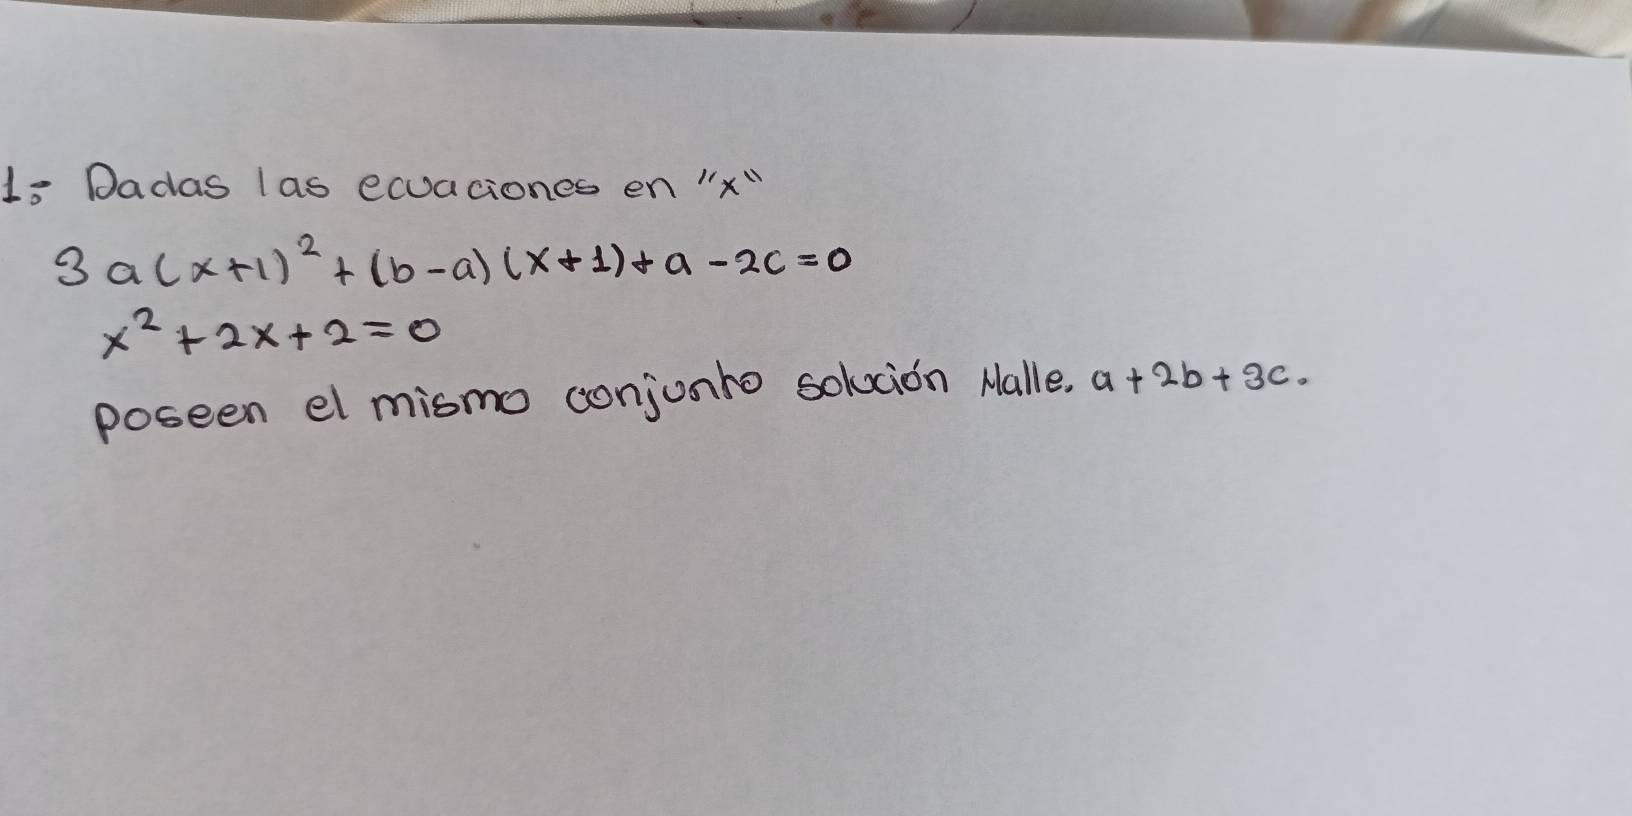 1:- Dadas las ecuaciones en "x"
3a(x+1)² + (b-a)(x+1)+a-2c=0
x²+2x+2=0
poseen el mismo conjunto solución Halle. a+2b+3c.